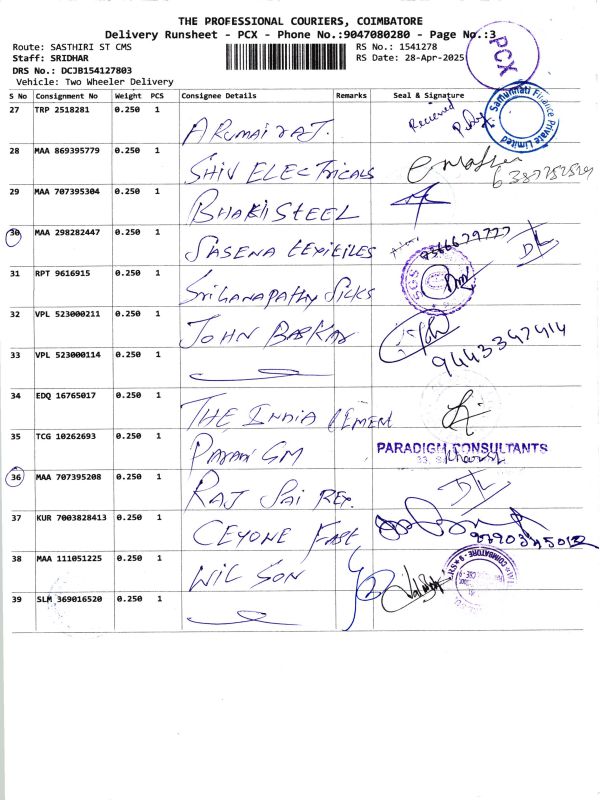 THE PROFESSIONAL COURIERS, COIMBATORE
Delivery Runsheet - PCX - Phone No.:9047080280 - Page No.:3
Route: SASTHIRI ST CMS
RS No.: 1541278
Staff: SRIDHAR
RS Date: 28-Apr-2025
DRS No.: DCJB154127803
Vehicle: Two Wheeler Delivery
PCX
S No Consignment No Weight PCS Consignee Details Remarks Seal & Signature
27 TRP 2518281 0.250 1 Recieved
Samunnati Finance Private Limited
28 MAA 869395779 0.250 1 SHIV ELECTRICALS
29 MAA 707395304 0.250 1 STEEL
30 MAA 298282447 0.250 1
31 RPT 9616915 0.250 1 SGS
32 VPL 523000211 0.250 1 JOHN 9443347414
33 VPL 523000114 0.250 1
34 EDQ 16765017 0.250 1 THE INDIA CEMENT
35 TCG 10262693 0.250 1 GM PARADIGM CONSULTANTS
36 MAA 707395208 0.250 1 RAJ SAI
37 KUR 7003828413 0.250 1 CEYONE
38 MAA 111051225 0.250 1 WILSON COIMBATORE
39 SLM 369016520 0.250 1